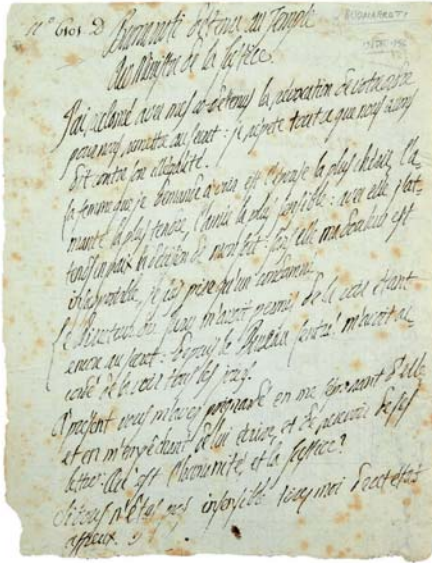 n° 6101. D
BUONARROTI
Buonarroti détenu au Temple
Au Ministre de la Justice.
J'ai réclamé avec mes co-détenus la révocation de votre ordre
pour nous remettre au secret : je répète tout ce que nous avons
dit contre son illégalité.
La femme que je demande à voir est l'épouse la plus chérie, l'a-
mante la plus tendre, l'amie la plus sensible : avec elle j'at-
tends en paix la décision de mon sort : sans elle ma douleur est
insupportable, je suis pire qu'un condamné.
Le Directeur du Jury m'avait permis de la voir étant
encore au secret : depuis le Bureau central m'avait ac-
cordé de la voir tous les jours.
A présent vous m'avez poignardé en me séparant d'elle
et en m'empêchant de lui écrire, et de recevoir de ses
lettres. Où est l'humanité, et la justice?
Si vous n'êtes pas insensible tirez moi de cet état
affreux.